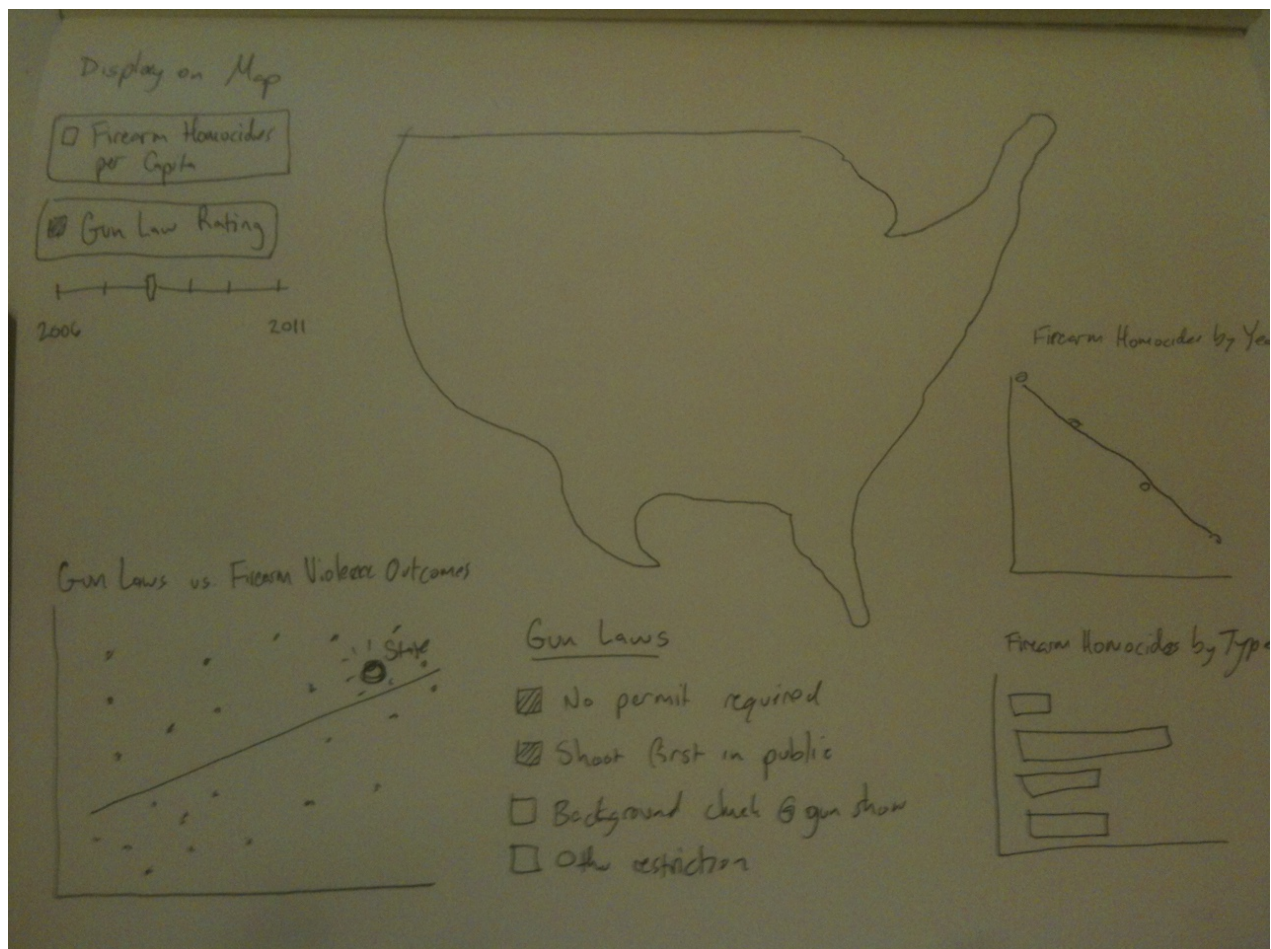 Display on Map
Firearm Homocides
per Capita
Gun Law Rating
2006
2011
Firearm Homocides by Yea
Gun Laws vs. Firearm Violence Outcomes
State
Gun Laws
No permit required
Shoot first in public
Background check @ gun show
Other restriction
Firearm Homocides by Type